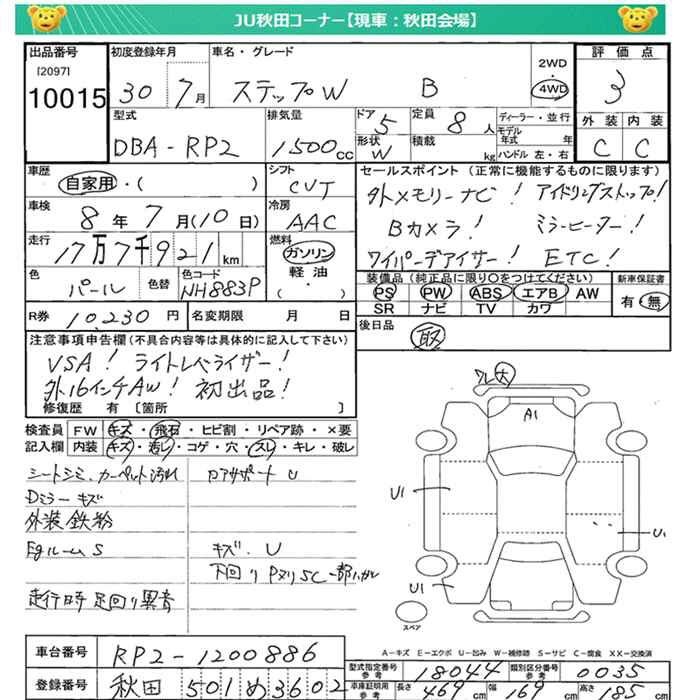 JU秋田コーナー【現車：秋田会場】
出品番号 初度登録年月 車名・グレード 2WD・4WD 評価点
[2097]
10015 30 7月 ステップW B 3
型式 排気量 ドア 定員 ディーラー・並行 外装 内装
DBA-RP2 1500cc 5 8人 モデル年式 年 C C
形状 W 積載 kg ハンドル 左・右
車歴 シフト セールスポイント (正常に機能するものに限ります)
自家用・( ) CVT 外メモリーナビ! アイドリングストップ!
車検 冷房 Bカメラ! ミラーヒーター!
8年7月(10日) AAC ワイパーデアイサー! ETC!
走行 燃料
17万7千921km ガソリン・軽油・( )
装備品(純正品に限り○をつけてください) 新車保証書
色 色替 色コード PS PW ABS エアB AW 有・無
パール NH883P SR ナビ TV カワ
R券 10,230円 名変期限 月 日 後日品
取
注意事項申告欄(不具合内容等は具体的に記入して下さい)
VSA! ライトレベライザー!
外16インチAW! 初出品!
修復歴 有 〔箇所 〕
検査員記入欄 FW キズ・飛石・ヒビ割・リペア跡・×要
内装 キズ・汚レ・コゲ・穴・スレ・キレ・破レ
シートシミ、カーペット汚れ
Dミラーキズ
外装鉄粉
Egルーム S キズ、U
走行時 足回り異音
A1
U1
U1
U1
スペア
A-キズ E-エクボ U-凹み W-補修跡 S-サビ C-腐食 XX-交換済
車台番号 RP2-1200886
型式指定番号参考 18044 類別区分番号参考 0035
登録番号 秋田 501 め 3602
車庫証明用参考 長さ 469cm 幅 169cm 高さ 185cm